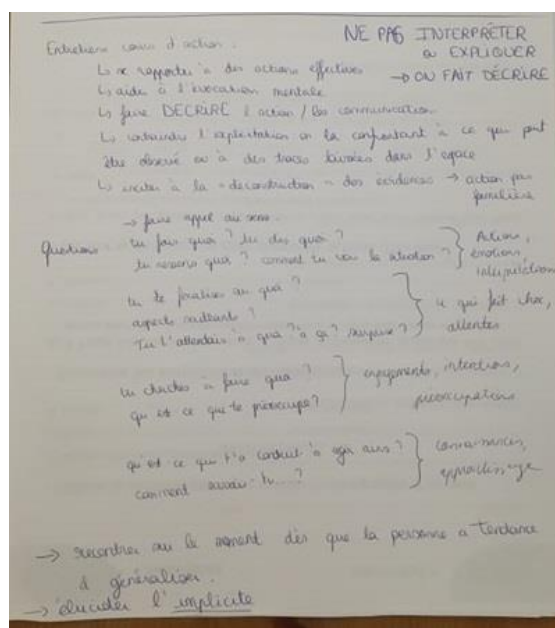 NE PAS INTERPRÉTER
ou EXPLIQUER
→ ON FAIT DÉCRIRE
Entretiens cours d'action :
↳ se rapporter à des actions effectives
↳ aide à l'évocation mentale
↳ faire DECRIRE l'action / les communications
↳ l'explicitation en la confrontant à ce qui peut
être observé ou à des traces laissées dans l'espace
↳ inciter à la "deconstruction" des évidences → action pas
familière
→ faire appel au sens.
Questions tu fais quoi ? tu dis quoi ?
tu ressens quoi ? comment tu vois la situation ? } Actions,
émotions,
interprétations
tu te focalises sur quoi ?
aspects saillants ?
Tu t'attendais à quoi ? à ça ? surprise ? } ce qui fait choc,
attentes
tu cherches à faire quoi ?
qu'est ce qui te préoccupe ? } engagements, intentions,
préoccupations
qu'est-ce qui t'a conduit à agir ainsi ?
comment savais-tu...? } connaissances,
apprentissage
→ recentrer sur le moment dès que la personne a tendance
à généraliser.
→ élucider l'implicite